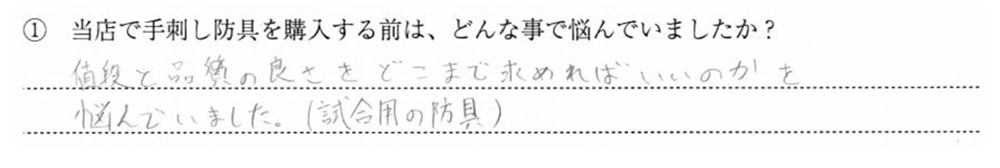 ① 当店で手刺し防具を購入する前は、どんな事で悩んでいましたか？
値段と品質の良さをどこまで求めればいいのかを
悩んでいました。(試合用の防具)